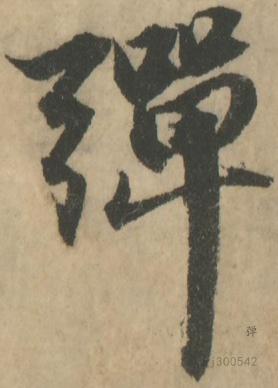 彈
弹
j300542